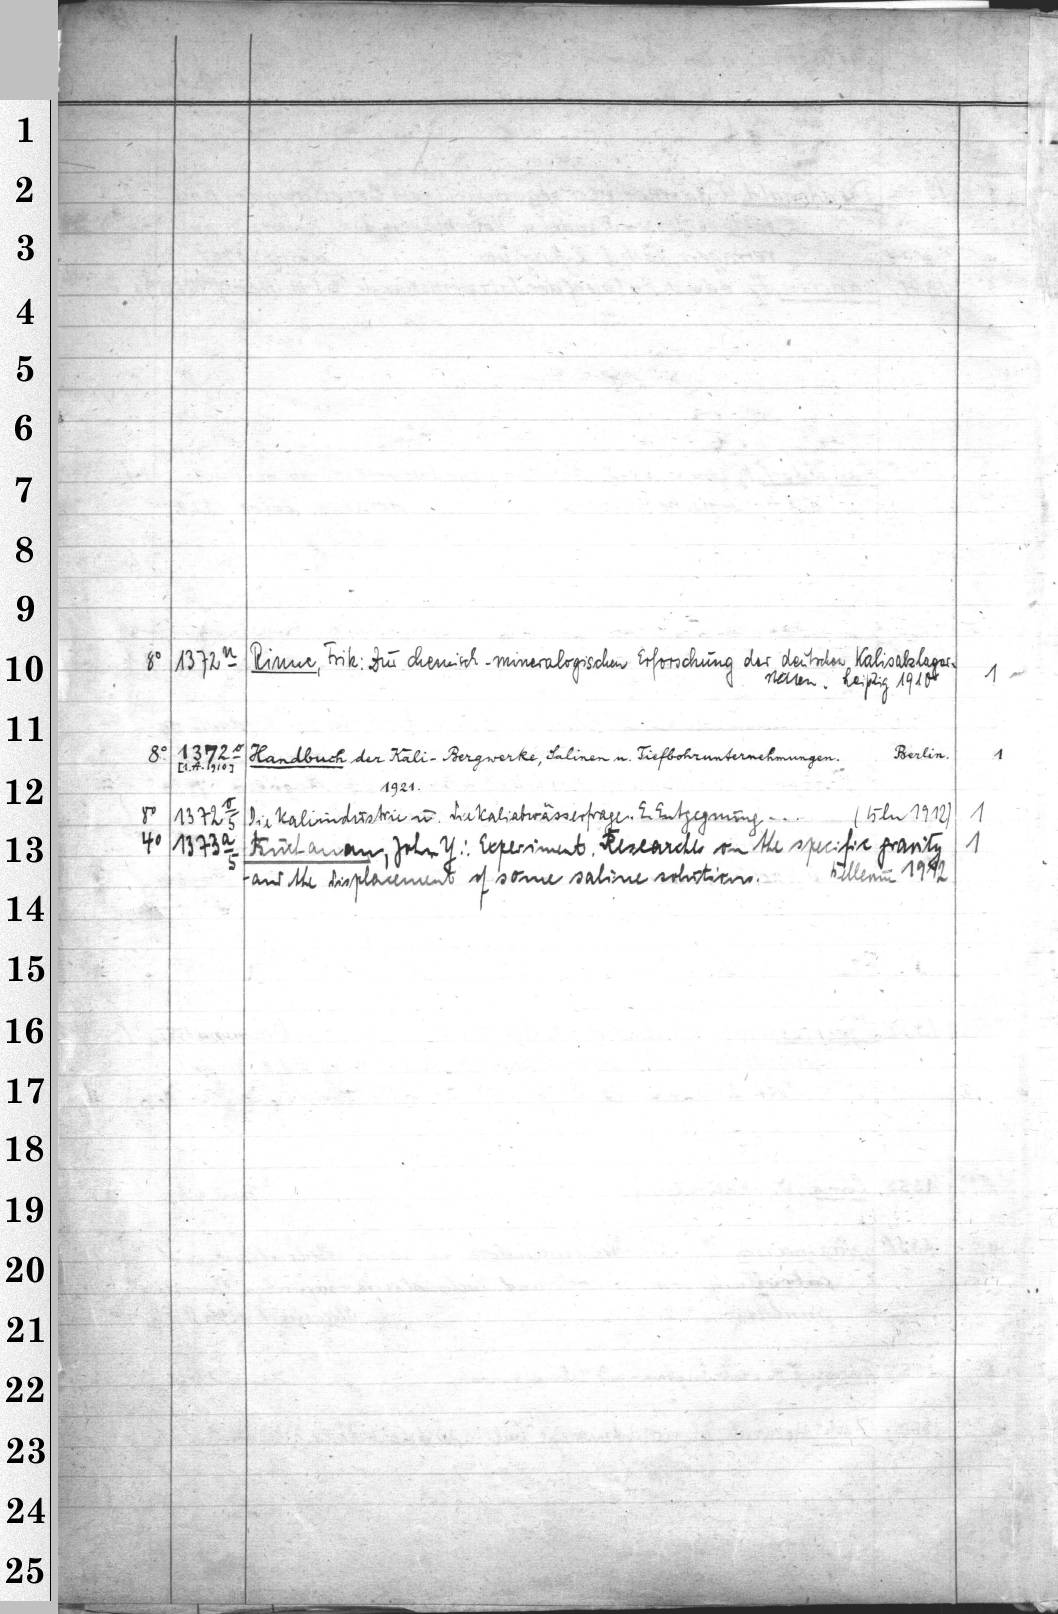 1
2
3
4
5
6
7
8
9
10
11
12
13
14
15
16
17
18
19
20
21
22
23
24
25
8° 1372 n Rinne, Frik: Zur chemisch-mineralogischen Erforschung der deutschen Kalisalzlager-
stätten. Leipzig 1910 1
8° 1372 o Handbuch der Kali-Bergwerke, Salinen u. Tiefbohrunternehmungen. Berlin. 1
1921.
8° 1372 Die Kaliindustrie u. die Kaliabwässerfrage. E. Entgegnung ... 1912) 1
4° 1373 a John Y.: Experiment. Researches on the specific gravity 1
and the displacement of some saline solutions. 1912